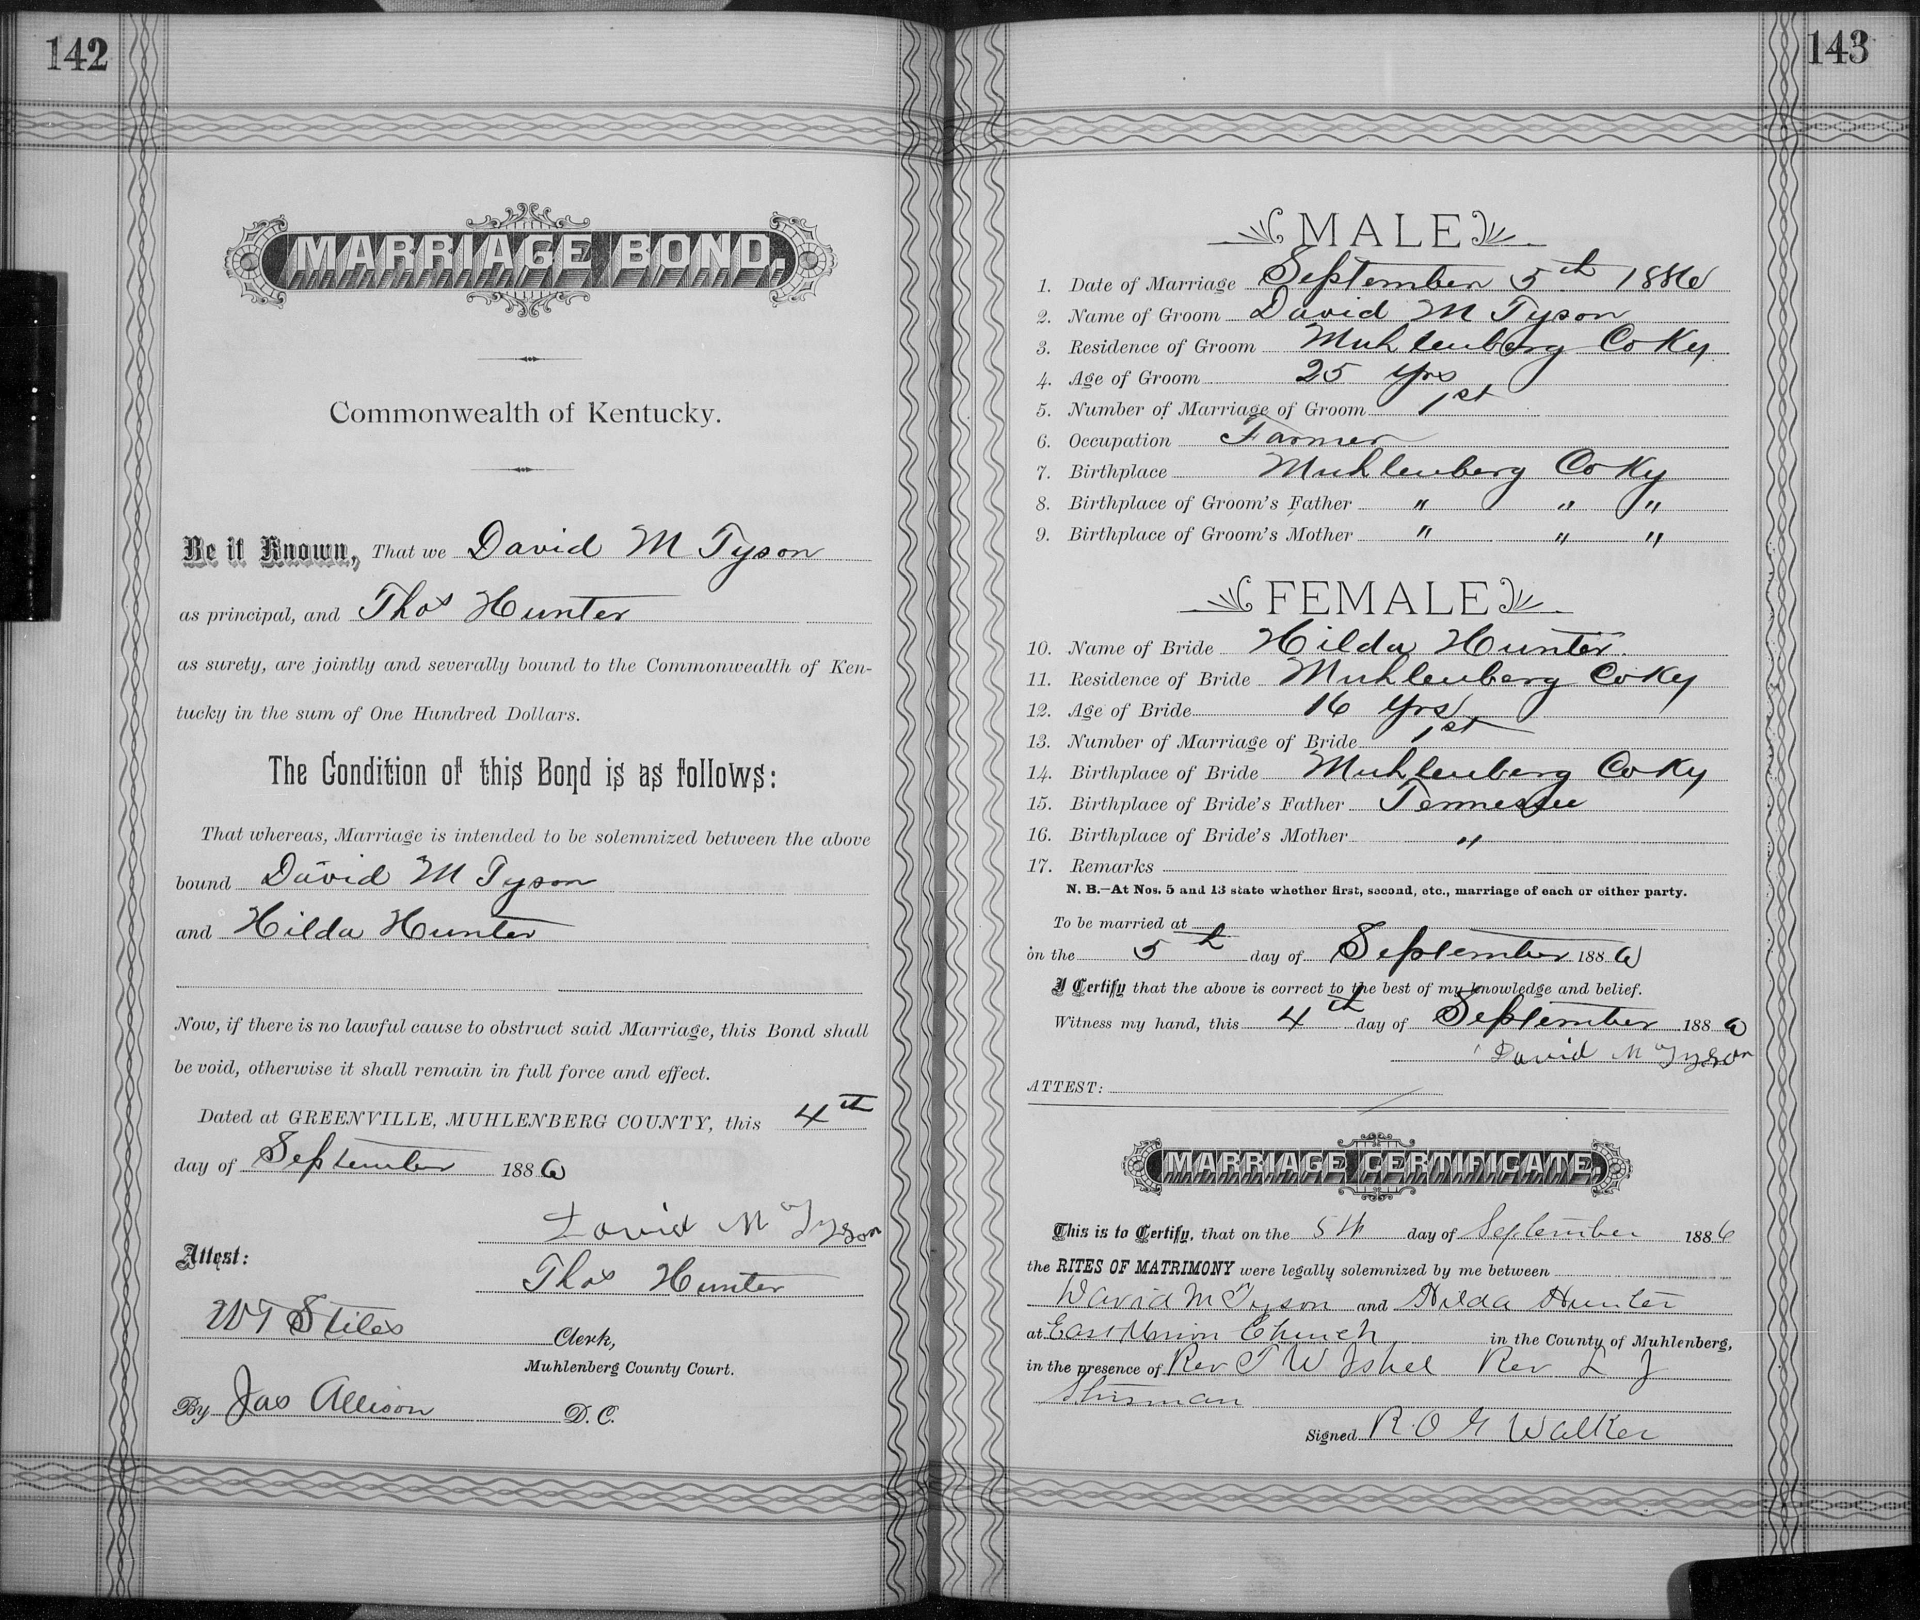 142
MARRIAGE BOND.
Commonwealth of Kentucky.
Be it Known, That we David M Tyson
as principal, and Thos Hunter
as surety, are jointly and severally bound to the Commonwealth of Ken-
tucky in the sum of One Hundred Dollars.
The Condition of this Bond is as follows:
That whereas, Marriage is intended to be solemnized between the above
bound David M Tyson
and Hilda Hunter
Now, if there is no lawful cause to obstruct said Marriage, this Bond shall
be void, otherwise it shall remain in full force and effect.
Dated at GREENVILLE, MUHLENBERG COUNTY, this 4th
day of September 1886
David M Tyson
Attest:
Thos Hunter
WT Stiles Clerk,
Muhlenberg County Court.
By Jas Allison D. C.
143
MALE
1. Date of Marriage September 5th 1886
2. Name of Groom David M Tyson
3. Residence of Groom Muhlenberg Co Ky
4. Age of Groom 25 yrs
5. Number of Marriage of Groom 1st
6. Occupation Farmer
7. Birthplace Muhlenberg Co Ky
8. Birthplace of Groom's Father " " "
9. Birthplace of Groom's Mother " " "
FEMALE
10. Name of Bride Hilda Hunter.
11. Residence of Bride Muhlenberg Co Ky
12. Age of Bride 16 yrs
13. Number of Marriage of Bride 1st
14. Birthplace of Bride Muhlenberg Co Ky
15. Birthplace of Bride's Father Tennessee
16. Birthplace of Bride's Mother "
17. Remarks
N. B.—At Nos. 5 and 13 state whether first, second, etc., marriage of each or either party.
To be married at
on the 5th day of September 1886
I Certify that the above is correct to the best of my knowledge and belief.
Witness my hand, this 4th day of September 1886
David M Tyson
ATTEST:
MARRIAGE CERTIFICATE.
This is to Certify, that on the 5th day of September 1886
the RITES OF MATRIMONY were legally solemnized by me between
David M Tyson and Hilda Hunter
at East Union Church in the County of Muhlenberg,
in the presence of Rev T W Rev L J
Signed R. O. G Walker